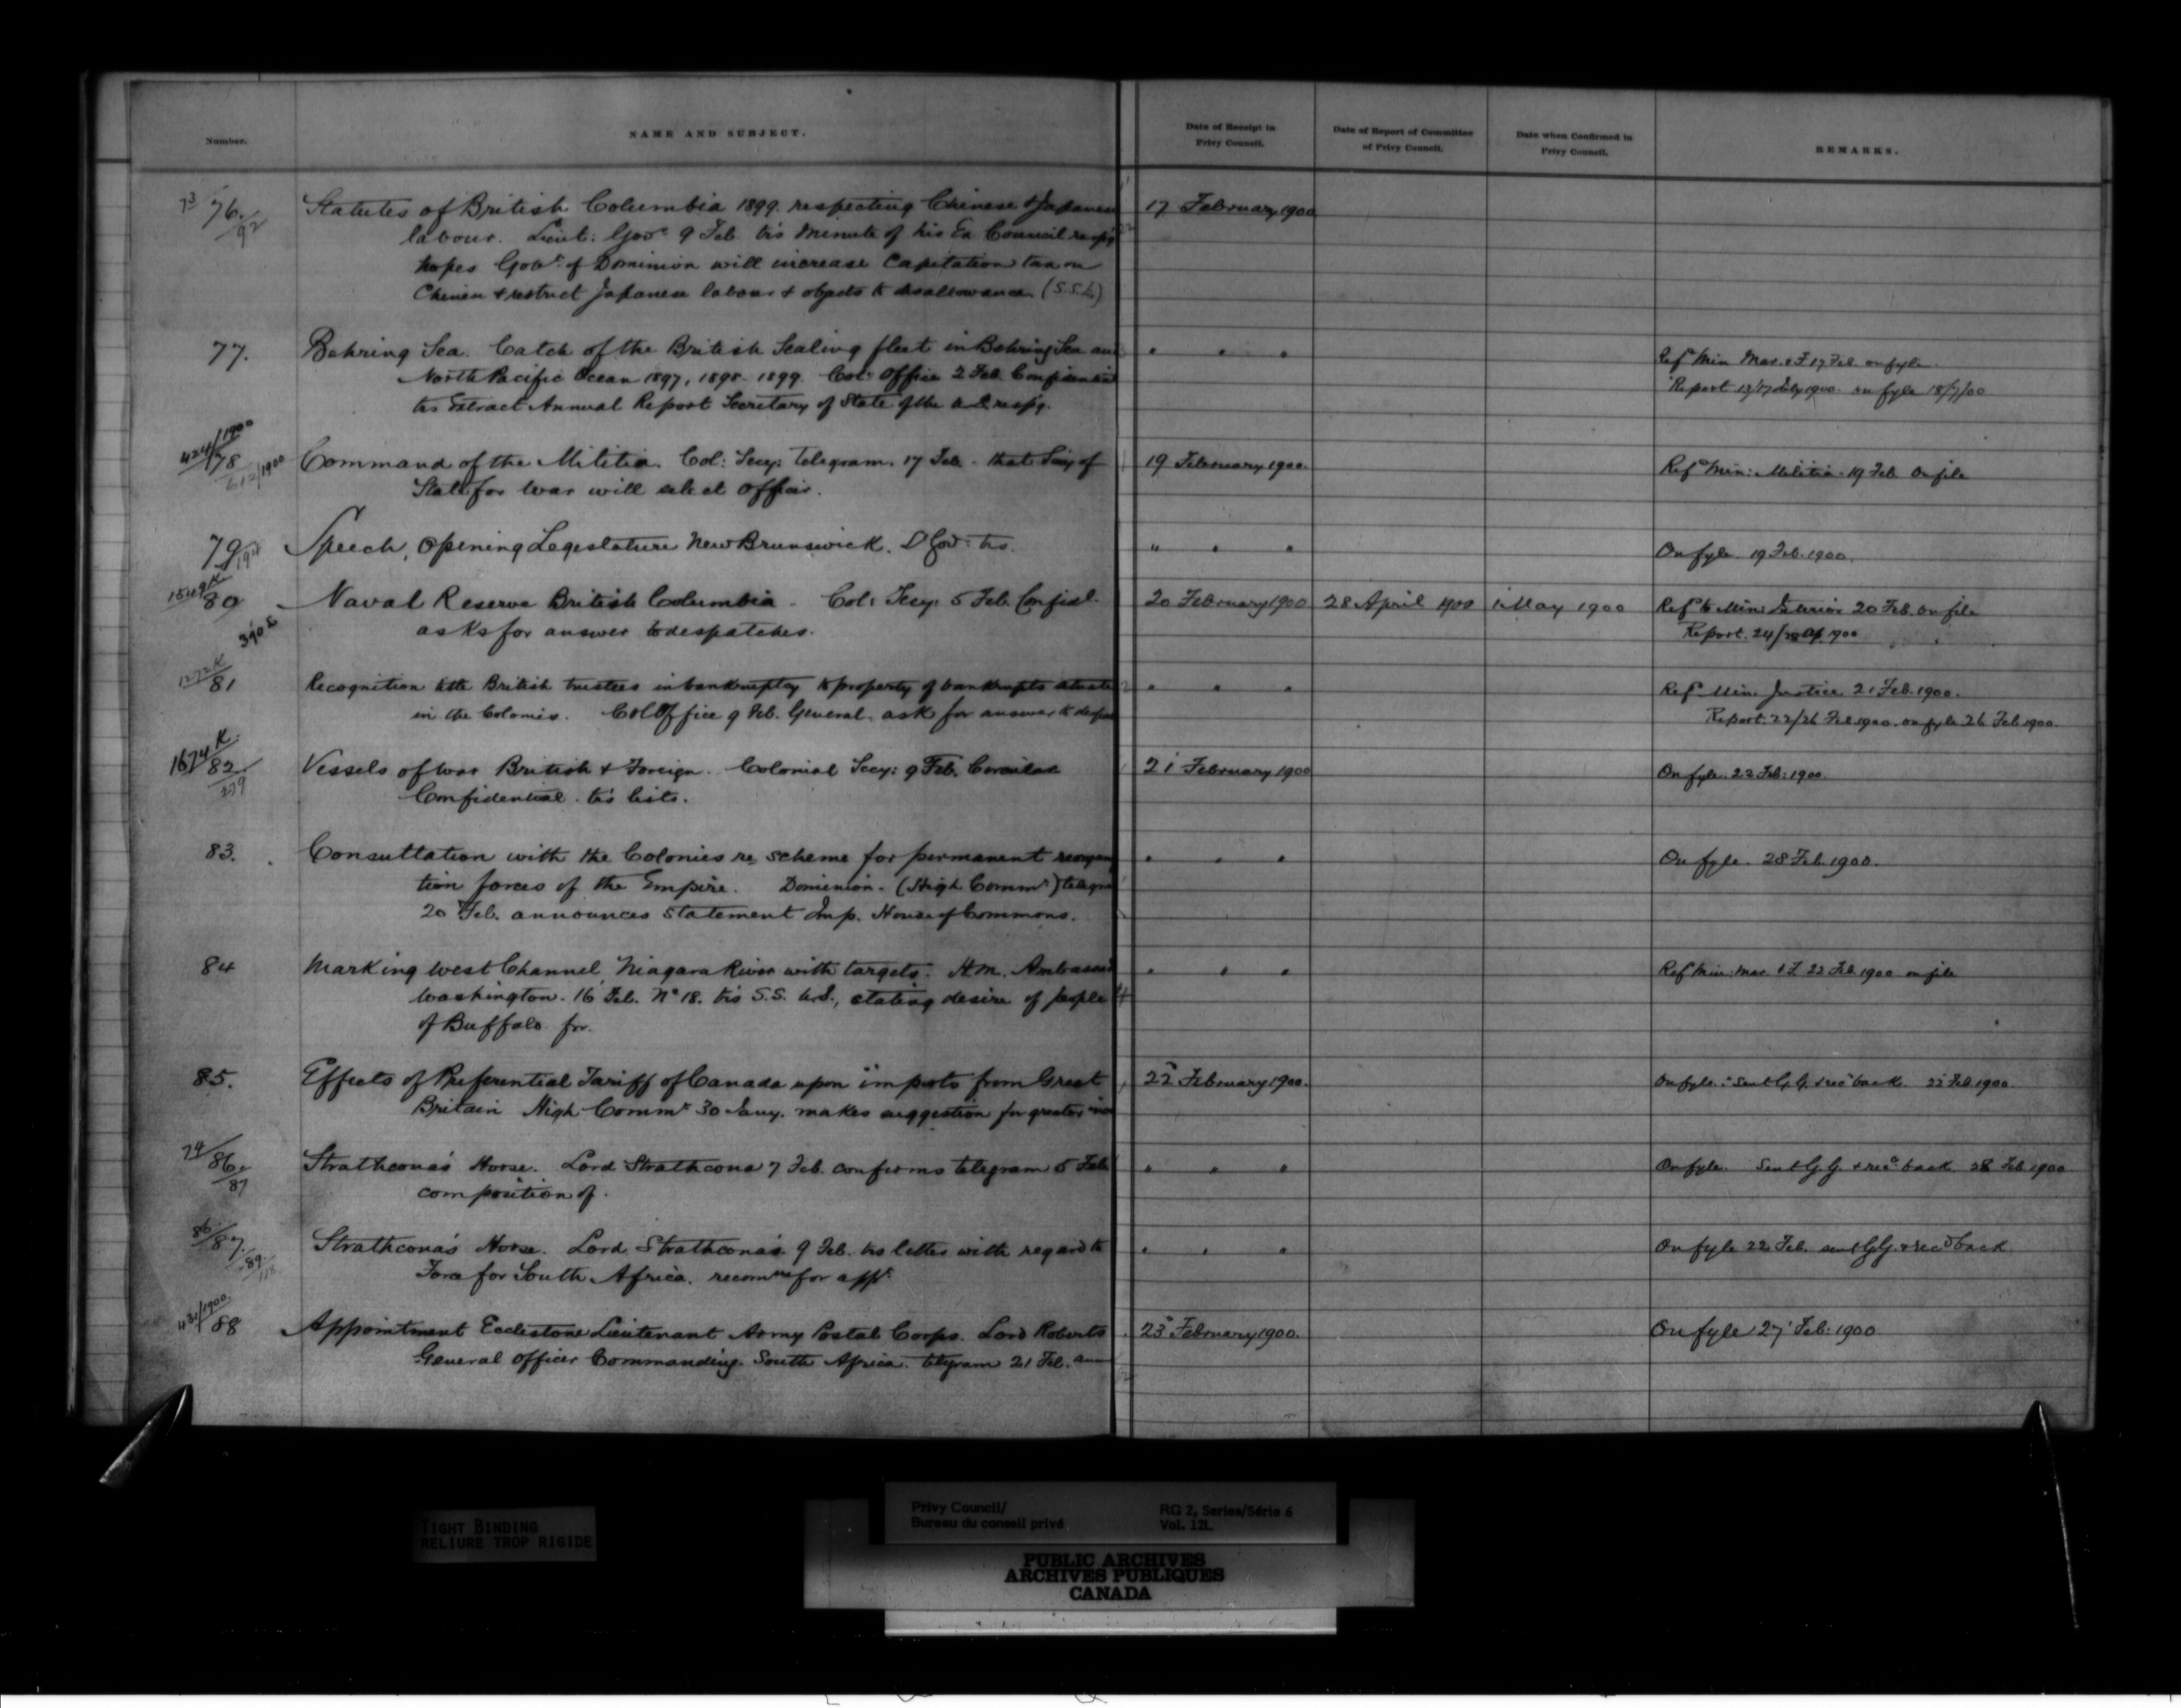 Number.
NAME AND SUBJECT.
Date of Receipt in
Privy Council.
Date of Report of Committee
of Privy Council.
Date when Confirmed in
Privy Council.
REMARKS.
73/76./92
Statutes of British Columbia 1899. respecting Chinese & Japanese
17 February 1900
labour. Lieut: Govr 9 Feb. trs Minute of his Ex Council
hopes Govt of Dominion will increase Capitation tax on
Chinese & restrict Japanese labour & objects to disallowance. (S.S.L.)
77.
Behring Sea. Catch of the British Sealing fleet in Behring Sea and
" " "
Refd Min Mar. & F 17 Feb. on fyle.
North Pacific Ocean 1897, 1898. 1899. Col: Office 2 Feb. Confidential
Report 13/17 July 1900. on fyle 18/7/00
trs Extract Annual Report Secretary of State of the U.S. respg.
424/1900
78
612/1900
Command of the Militia. Col: Secy: Telegram. 17 Feb. that Secy of
19 February 1900.
Refd Min: Militia. 19 Feb. On file
State for War will select officer.
79
Speech, Opening Legislature New Brunswick. L Govr trs.
" " "
On fyle 19 Feb. 1900.
1549K
80
390 E
Naval Reserve British Columbia. Col: Secy: 5 Feb. Confidl.
20 February 1900
28 April 1900
1 May 1900
Refd to Min: Interior 20 Feb. on file
asks for answer to despatches.
Report. 24/28 Ap. 1900
1272K
81
Recognition title British trustees in bankruptcy to property of bankrupts situate
" " "
Refd Min. Justice 21 Feb. 1900.
in the Colonies. Col Office 9 Feb. General. ask for answer to
Report. 22/26 Feb. 1900. on fyle 26 Feb 1900.
1674 K.
82.
Vessels of War British & Foreign. Colonial Secy: 9 Feb. Circular
21 February 1900
On fyle. 22 Feb: 1900.
Confidential. trs lists.
83.
Consultation with the Colonies re scheme for permanent
" " "
On fyle. 28 Feb. 1900.
tion forces of the Empire. Dominion. (High Commr)
20 Feb. announces statement Imp. House of Commons.
84
Marking West Channel Niagara River with targets. H.M. Ambassad
" " "
Refd Min: Mar. & F. 22 Feb. 1900 on file
Washington. 16 Feb. No 18. trs S.S. U.S., stating desire of people
of Buffalo for.
85.
Effects of Preferential Tariff of Canada upon imports from Great
22 February 1900.
On fyle. Sent G.G. & recd back. 22 Feb 1900.
Britain High Commr 30 Jany. makes suggestion for greater
74/86./87
Strathcona's Horse. Lord Strathcona 7 Feb. confirms telegram 5 Feb.
" " "
On fyle. Sent G.G. & recd back 28 Feb 1900
composition of.
86/87./89.
Strathcona's Horse. Lord Strathcona's 9 Feb. trs letter with regard to
" " "
On fyle 22 Feb. sent G.G. & recd back
Force for South Africa. for
431/1900.
88
Appointment Ecclestone Lieutenant Army Postal Corps. Lord Roberts
23 February 1900.
On fyle 27 Feb: 1900
General Officer Commanding. South Africa. telegram 21 Feb.
TIGHT BINDING
RELIURE TROP RIGIDE
Privy Council/
Bureau du conseil privé
RG 2, Series/Série 6
Vol. 12L
PUBLIC ARCHIVES
ARCHIVES PUBLIQUES
CANADA